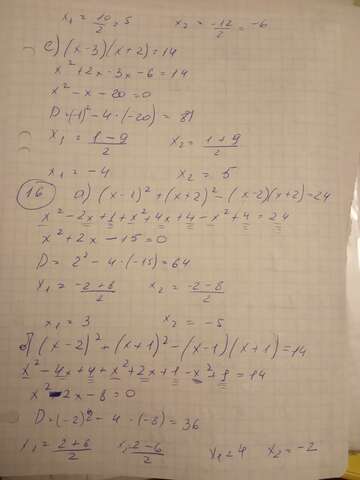 x₁ = 10/2 = 5 x₂ = -12/2 = -6
e) (x-3)(x+2)=14
x²+2x-3x-6=14
x²-x-20=0
D=(-1)²-4·(-20)=81
x₁ = (1-9)/2 x₂ = (1+9)/2
x₁ = -4 x₂ = 5
16 a) (x-1)²+(x+2)²-(x-2)(x+2)=24
x²-2x+1+x²+4x+4-x²+4=24
x²+2x-15=0
D= 2²-4·(-15)=64
x₁ = (-2+8)/2 x₂ = (-2-8)/2
x₁ = 3 x₂ = -5
(x-2)²+(x+1)²-(x-1)(x+1)=14
x²-4x+4+x²+2x+1-x²+1=14
x²-2x-8=0
D=(-2)²-4·(-8)=36
x₁ = (2+6)/2 x₂ = (2-6)/2 x₁=4 x₂=-2